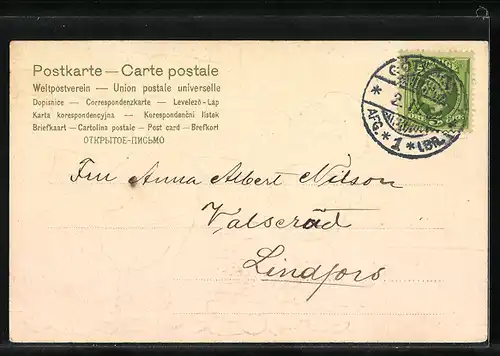 Postkarte — Carte postale
Weltpostverein — Union postale universelle
Dopisnice — Correspondenzkarte — Levelező-Lap
Karta korespondencyjna — Korespondenční lístek
Briefkaart — Cartolina postale — Post card — Brefkort
ОТКРЫТОЕ-ПИСЬМО
AFG. * 1 *
Fru Anna Albert Nilson
Valserud
Lindfors